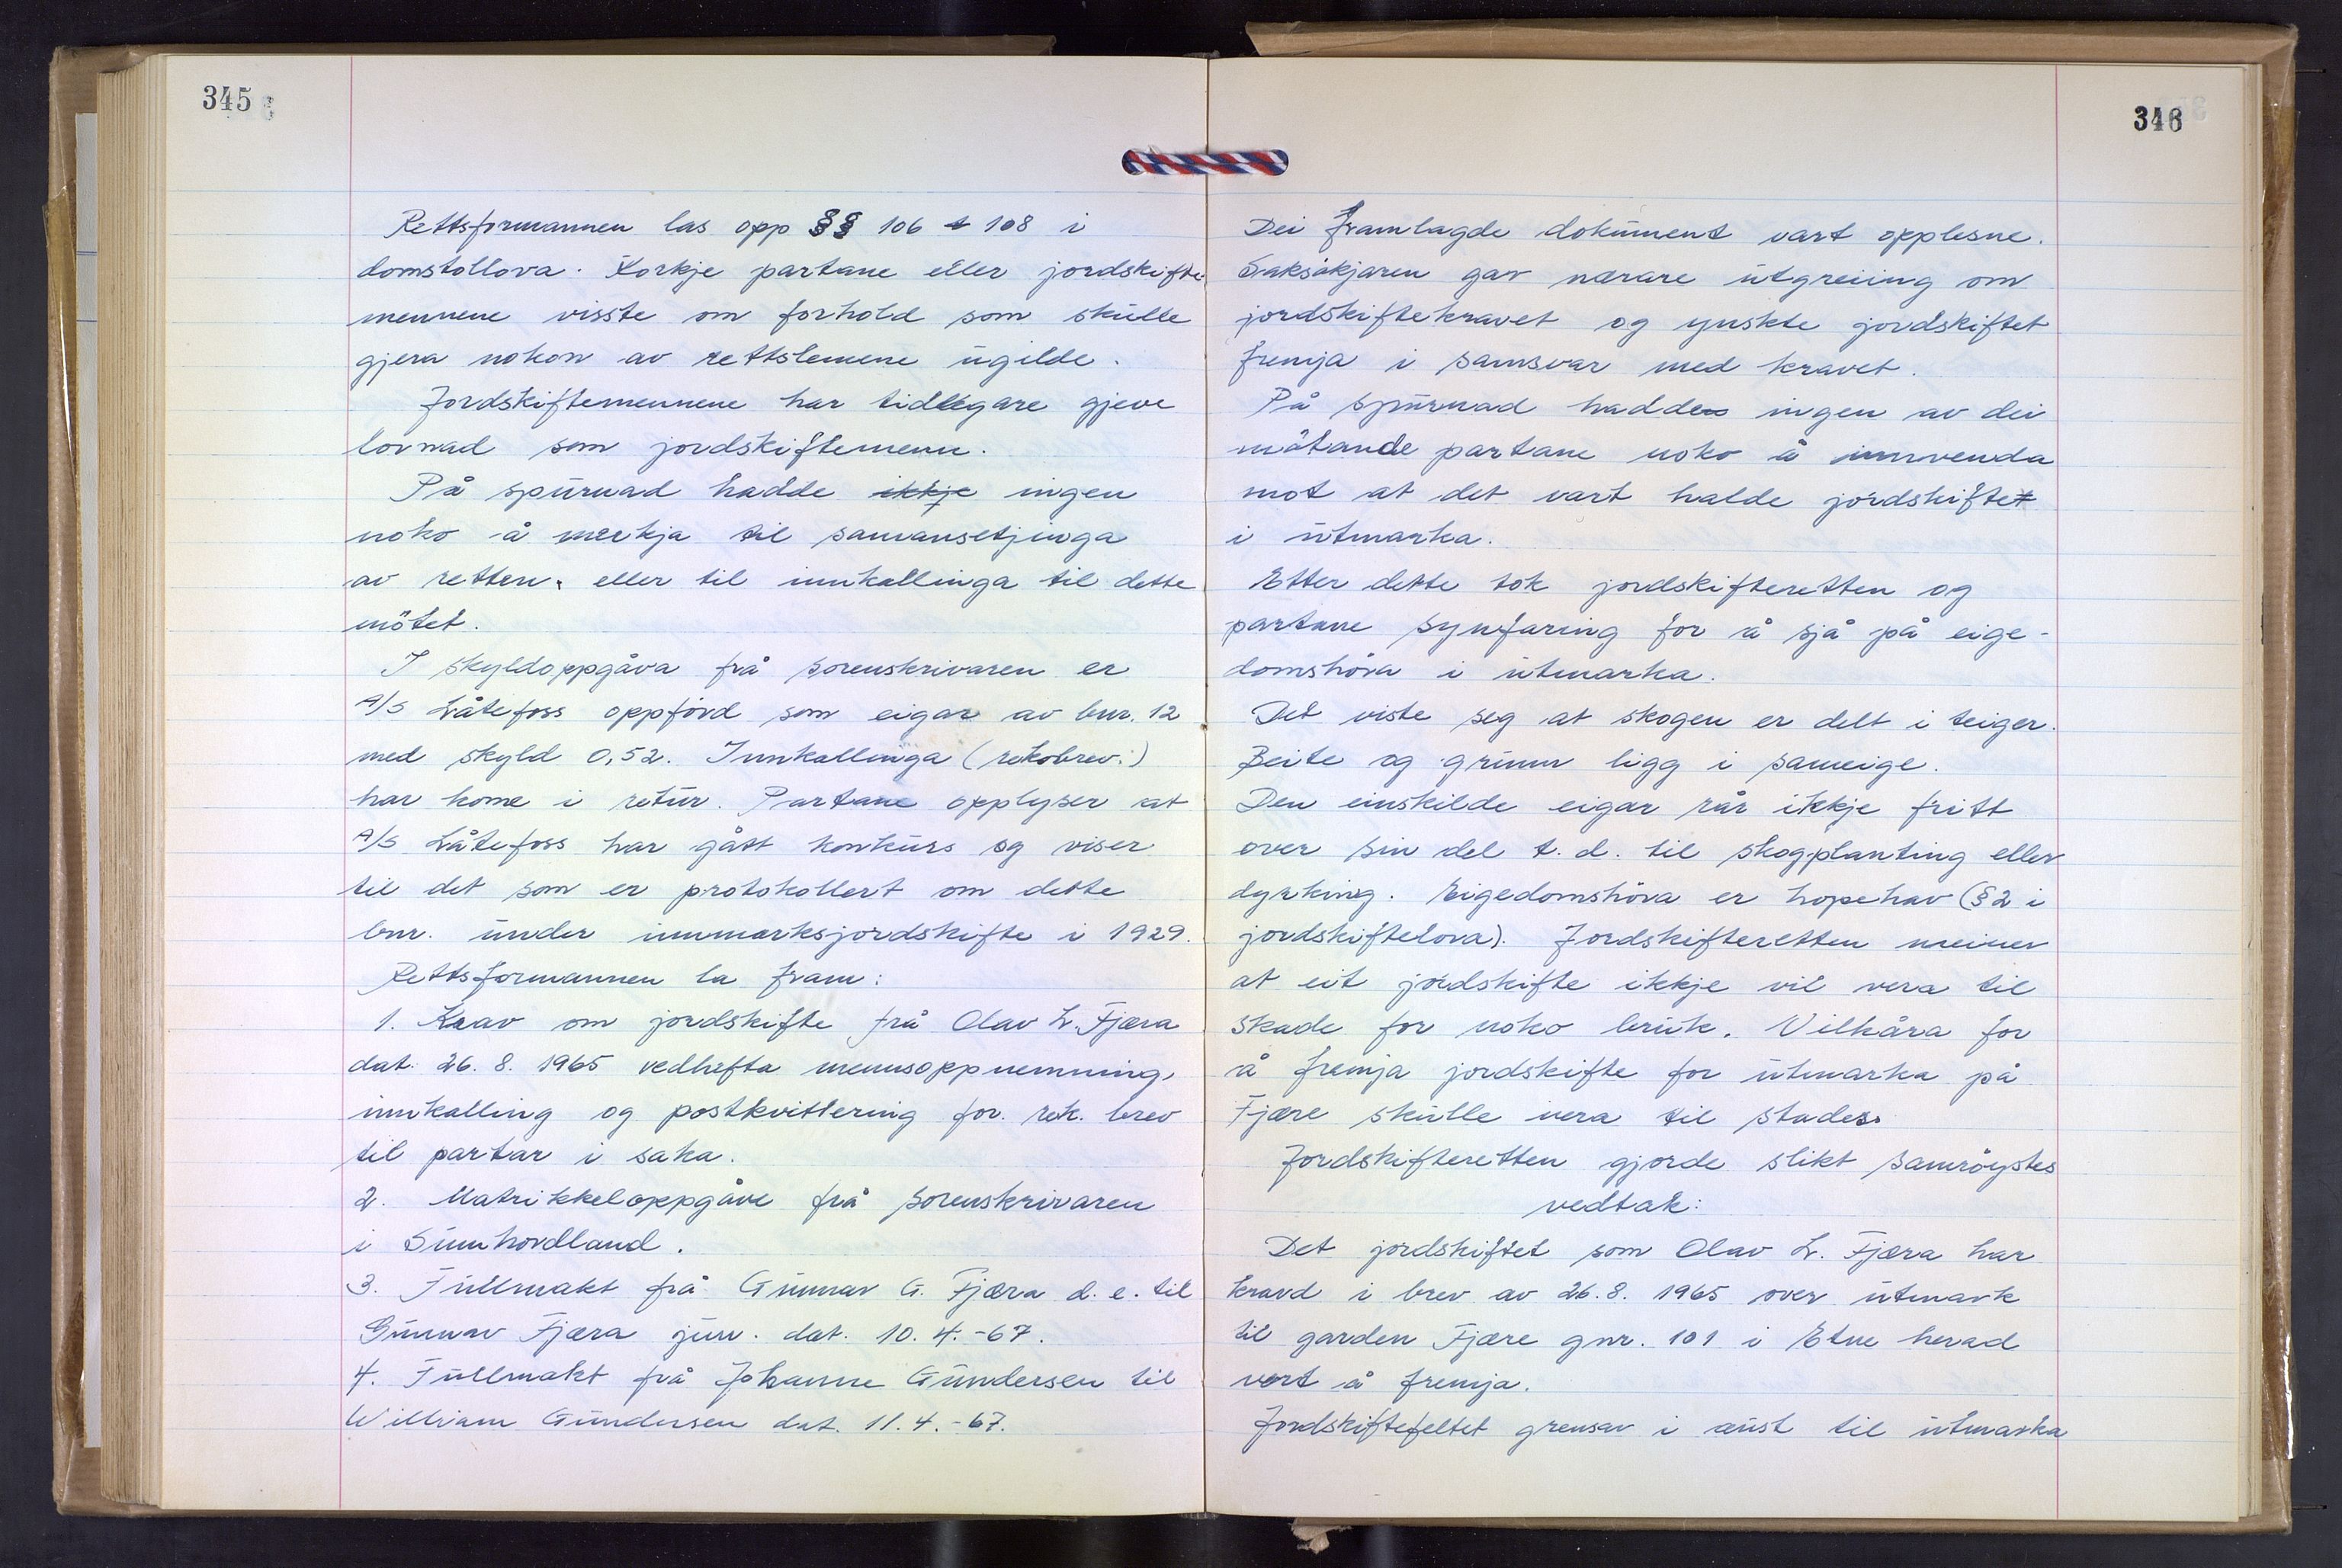 345
Rettsformannen las opp §§ 106 + 108 i
domstollova. Korkje partane eller jordskifte
mennene visste om forhold som skulle
gjera nokon av rettslemene ugilde.
Jordskiftemennene har tidlegare gjeve
lovnad som jordskiftemenn.
På spurnad hadde ikkje ingen
noko å merkja til samansetjinga
av retten, eller til innkallinga til dette
mötet.
I skyldoppgåva frå sorenskrivaren er
A/S Låtefoss oppförd som eigar av bnr. 12
med skyld 0,52. Innkallinga (rekobrev:)
har kome i retur. Partane opplyser at
A/S Låtefoss har gått konkurs og viser
til det som er protokollert om dette
bnr. under innmarksjordskifte i 1929.
Rettsformannen la fram:
1. Krav om jordskifte frå Olav L. Fjæra
dat. 26. 8. 1965 vedhefta mennsoppnemning,
innkalling og postkvittering for. rek. brev
til partar i saka.
2. Matrikkeloppgåve frå sorenskrivaren
i Sunnhordland.
3. Fullmakt frå Gunnar G. Fjæra d. e. til
Gunnar Fjæra jun. dat. 10. 4. -67.
4. Fullmakt frå Johanne Gundersen til
William Gundersen dat. 11. 4. -67.
346
Dei framlagde dokument vart opplesne.
Saksökjaren gav nærare utgreiing om
jordskiftekravet og ynskte jordskiftet
fremja i samsvar med kravet.
På spurnad hadde ingen av dei
mötande partane noko å innvenda
mot at det vart halde jordskifte
i utmarka.
Etter dette tok jordskifteretten og
partane synfaring for å sjå på eige-
domshöva i utmarka.
Det viste seg at skogen er delt i teiger.
Beite og grunn ligg i sameige.
Den einskilde eigar rår ikkje fritt
over sin del t. d. til skogplanting eller
dyrking. Eigedomshöva er hopehav (§ 2 i
jordskiftelova). Jordskifteretten meiner
at eit jordskifte ikkje vil vera til
skade for noko bruk. Vilkåra for
å fremja jordskifte for utmarka på
Fjære skulle vera til stades.
Jordskifteretten gjorde slikt samröystes
vedtak:
Det jordskiftet som Olav L. Fjæra har
kravd i brev av 26. 8. 1965 over utmark
til garden Fjære gnr. 101 i Etne herad
vert å fremja.
Jordskiftefeltet grensar i aust til utmarka